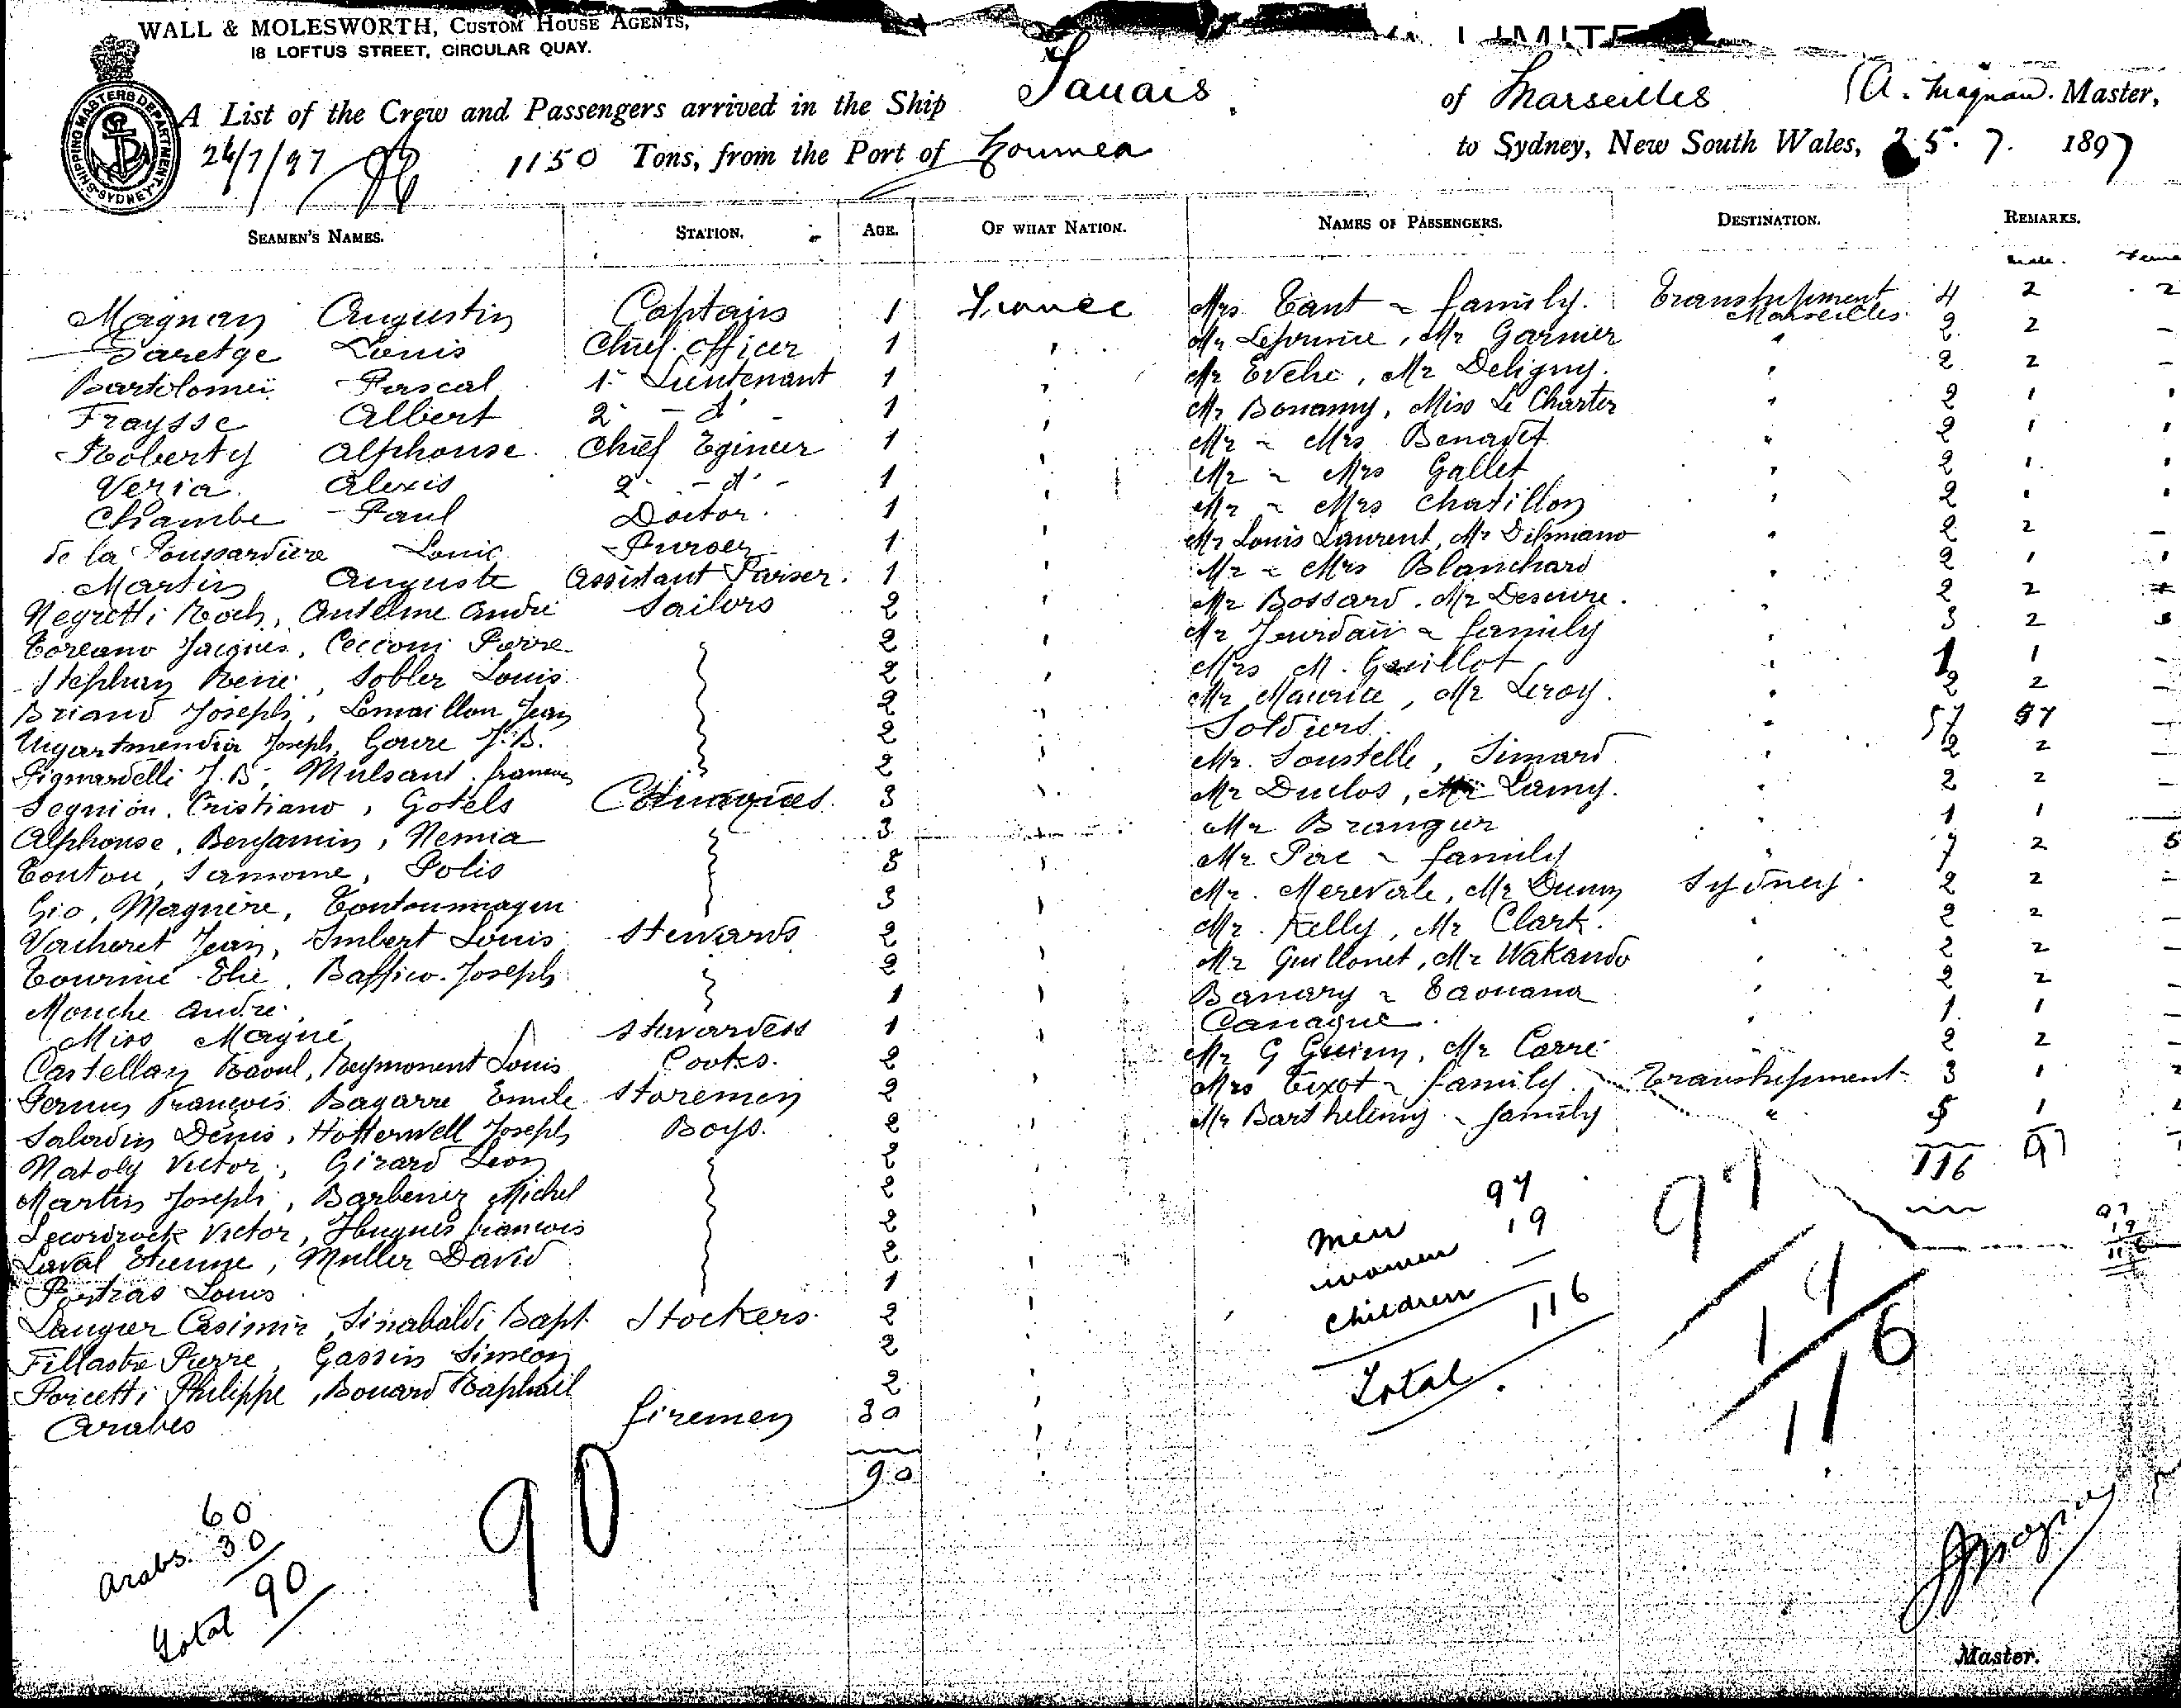 WALL & MOLESWORTH, CUSTOM HOUSE AGENTS,
18 LOFTUS STREET, CIRCULAR QUAY.
LIMITE
SHIPPING MASTERS DEPARTMENT SYDNEY
A List of the Crew and Passengers arrived in the Ship Tanais of Marseilles (A. Magnan. Master,
26/7/97 1150 Tons, from the Port of Noumea to Sydney, New South Wales, 25. 7. 1897
SEAMEN'S NAMES. STATION. AGE. OF WHAT NATION. NAMES OF PASSENGERS. DESTINATION. REMARKS.
Magnan Augustin Captain 1 France Mrs Tant & family. Transhipment Marseilles 4 2 2
Louis Chief officer 1 Mr Leprince, Mr Garnier 2 2 -
Bartolomei Pascal 1r Lieutenant 1 Mr Mr Deligny. 2 2 -
Fraysse Albert 2 - d - 1 Mr Bonamy, Miss Le Charter 2 1 1
Roberty Alphonse. Chief Egineer 1 Mr & Mrs Benazet 2 1 1
Veria Alexis 2 - d - 1 Mr & Mrs Gallet 2 1 1
Chambe Paul Doctor. 1 Mr & Mrs Chatillon 2 1 1
de la Poussardiere Louis Purser 1 Mr Louis Laurent, Mr 2 2 -
Martin Auguste Assistant Purser. 1 Mr & Mrs Blanchard 2 1 1
Negretti Roch, Antelme André Sailors 2 Mr Bossard. Mr 2 2
Toreano Jacques, Cecconi Pierre 2 Mr Jourdain & family 3 2
Stephan René, Sobler Louis 2 Mrs M. Guillot 1 1 -
Briand Joseph, Lemaillon Jean 2 Mr Maurice, Mr Leroy. 2 2 -
Joseph, Goure J.B. 2 Soldiers 57 57 -
J.B, Mulsant 2 Mr. Soustelle, Simard 2 2 -
Cristiano, Gotels 3 Mr Duclos, Mr Lamy. 2 2 -
Alphonse, Benjamin, Nemia 3 Mr Branger 1 1 -
Toutou, Polis 3 Mr & family 7 2 5
Gio, Magnere, 3 Mr. Merevale, Mr Dunn Sydney. 2 2 -
Vacheret Jean, Imbert Louis Stewards 2 Mr. Kelly, Mr Clark. 2 2 -
Elie, Baffico Joseph 2 Mr Guillonet, Mr Wakando 2 2 -
Mouche André. 1 Banary & Taouana 2 2 -
Miss Magné Stewardess 1 Canaque. 1 1 -
Castellan Raoul, Reymonent Louis Cooks. 2 Mr G Mr Carré 2 2 -
François Bagarre Emile Storemen 2 Mrs Tixot & family. Transhipment 3 1 2
Saladin Denis, Joseph Boys. 2 Mr Barthelemy & family " 5 1
Natoly Victor, Girard Leon 2 116 97
Martin Joseph, Michel 2
Victor, Hugues Francois 2
Laval Etienne, Muller David 2
Louis 1
Laugier Casimir, Sinabaldi Bapt Stockers. 2
Fillastre Pierre, Gassin Simeon 2
Porcetti Philippe, Bouard Raphaël 2
Arabes firemen 30
90
men 97
women 19
children -
Total 116
97
19
116
97
19
116
60
Arabs. 30
Total 90
90
Master.